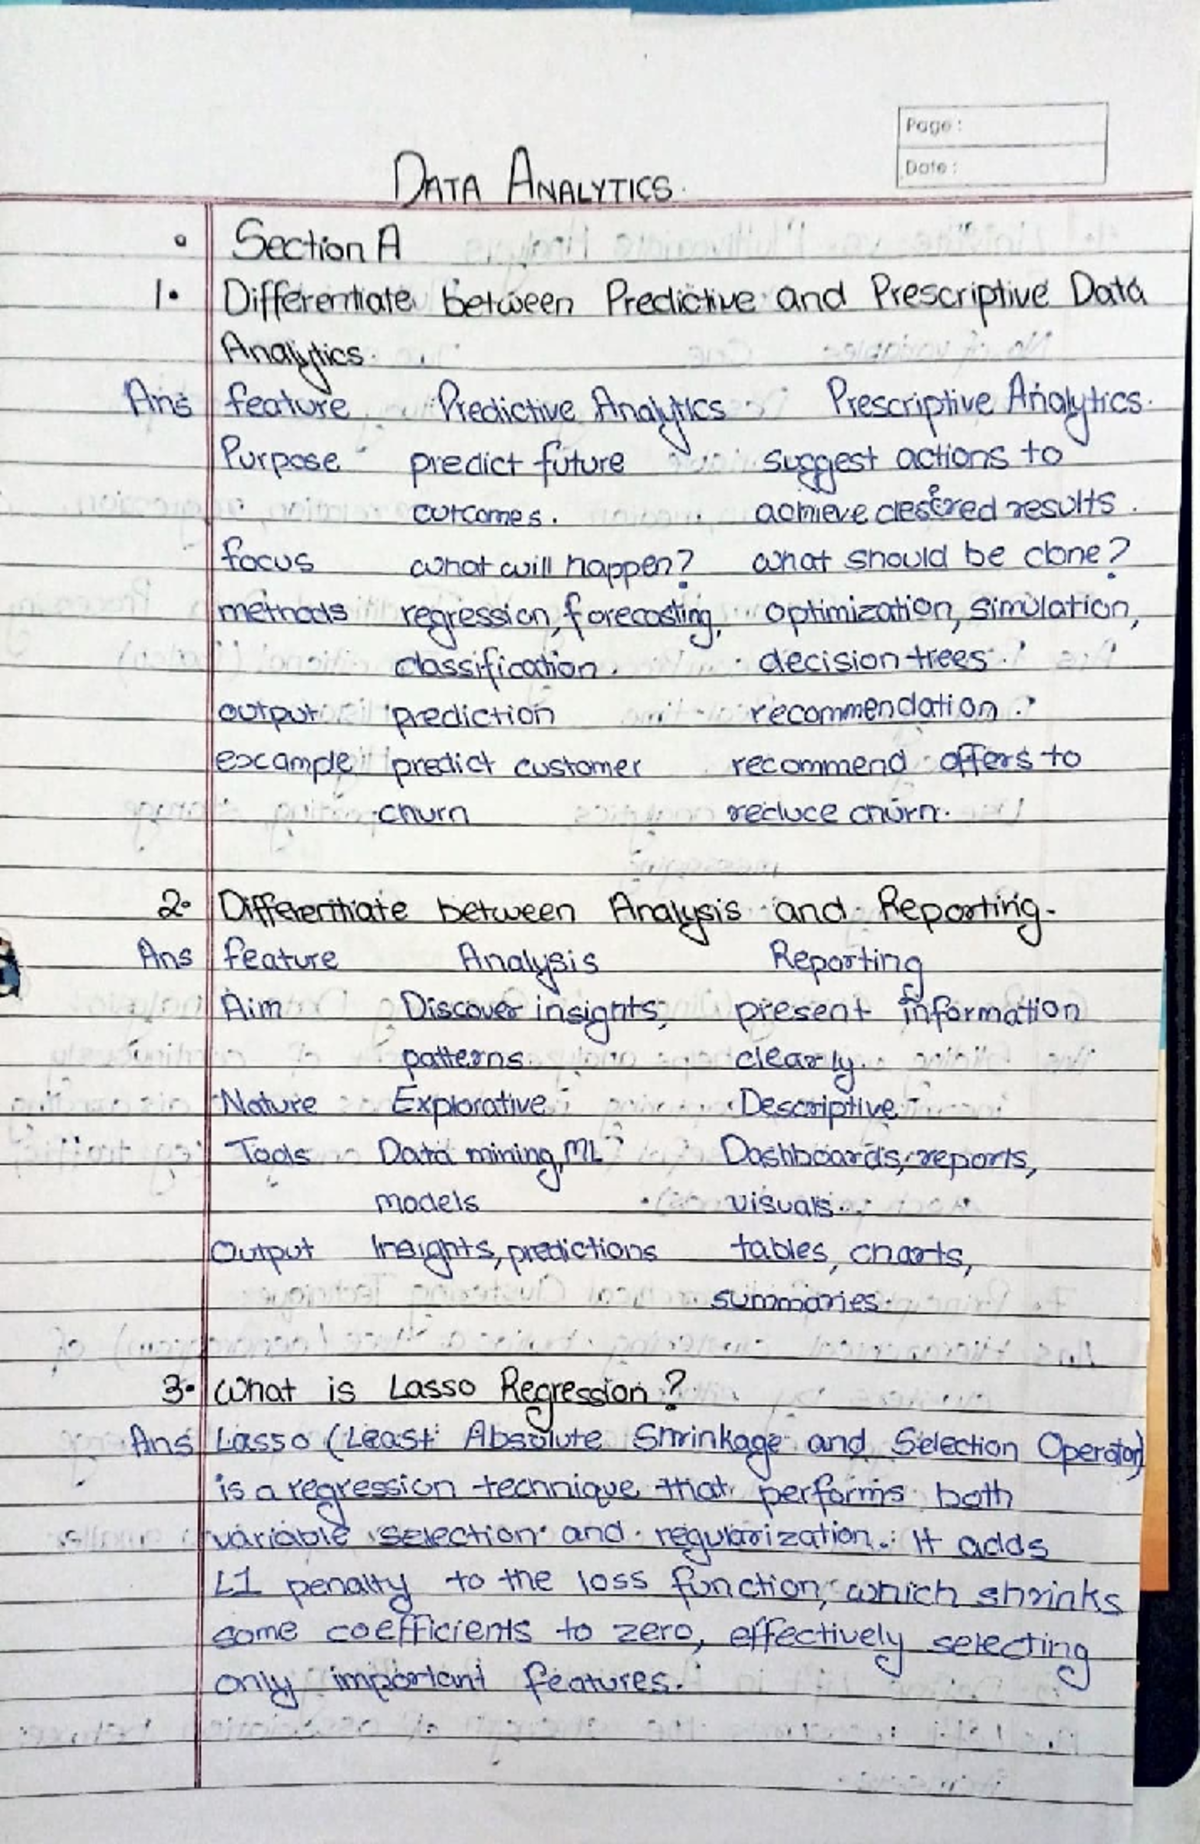 Page :
Date :
DATA ANALYTICS.
• Section A
1. Differentiate between Predictive and Prescriptive Data
Analytics.
Ans feature Predictive Analytics Prescriptive Analytics.
Purpose predict future suggest actions to
outcomes. achieve desired results.
focus what will happen? what should be done?
methods regression, forecasting, optimization, simulation,
classification. decision trees.
output prediction recommendation.
example predict customer recommend offers to
churn reduce churn.
2. Differentiate between Analysis and Reporting.
Ans feature Analysis Reporting
Aim Discover insights, present information
patterns clearly.
Nature Explorative Descriptive
Tools Data mining, ML Dashboards, reports,
models visuals.
Output Insights, predictions tables, charts,
summaries.
3. What is Lasso Regression?
Ans Lasso (Least Absolute Shrinkage and Selection Operator)
is a regression technique that performs both
variable selection and regularization. It adds
L1 penalty to the loss function, which shrinks
some coefficients to zero, effectively selecting
only important features.